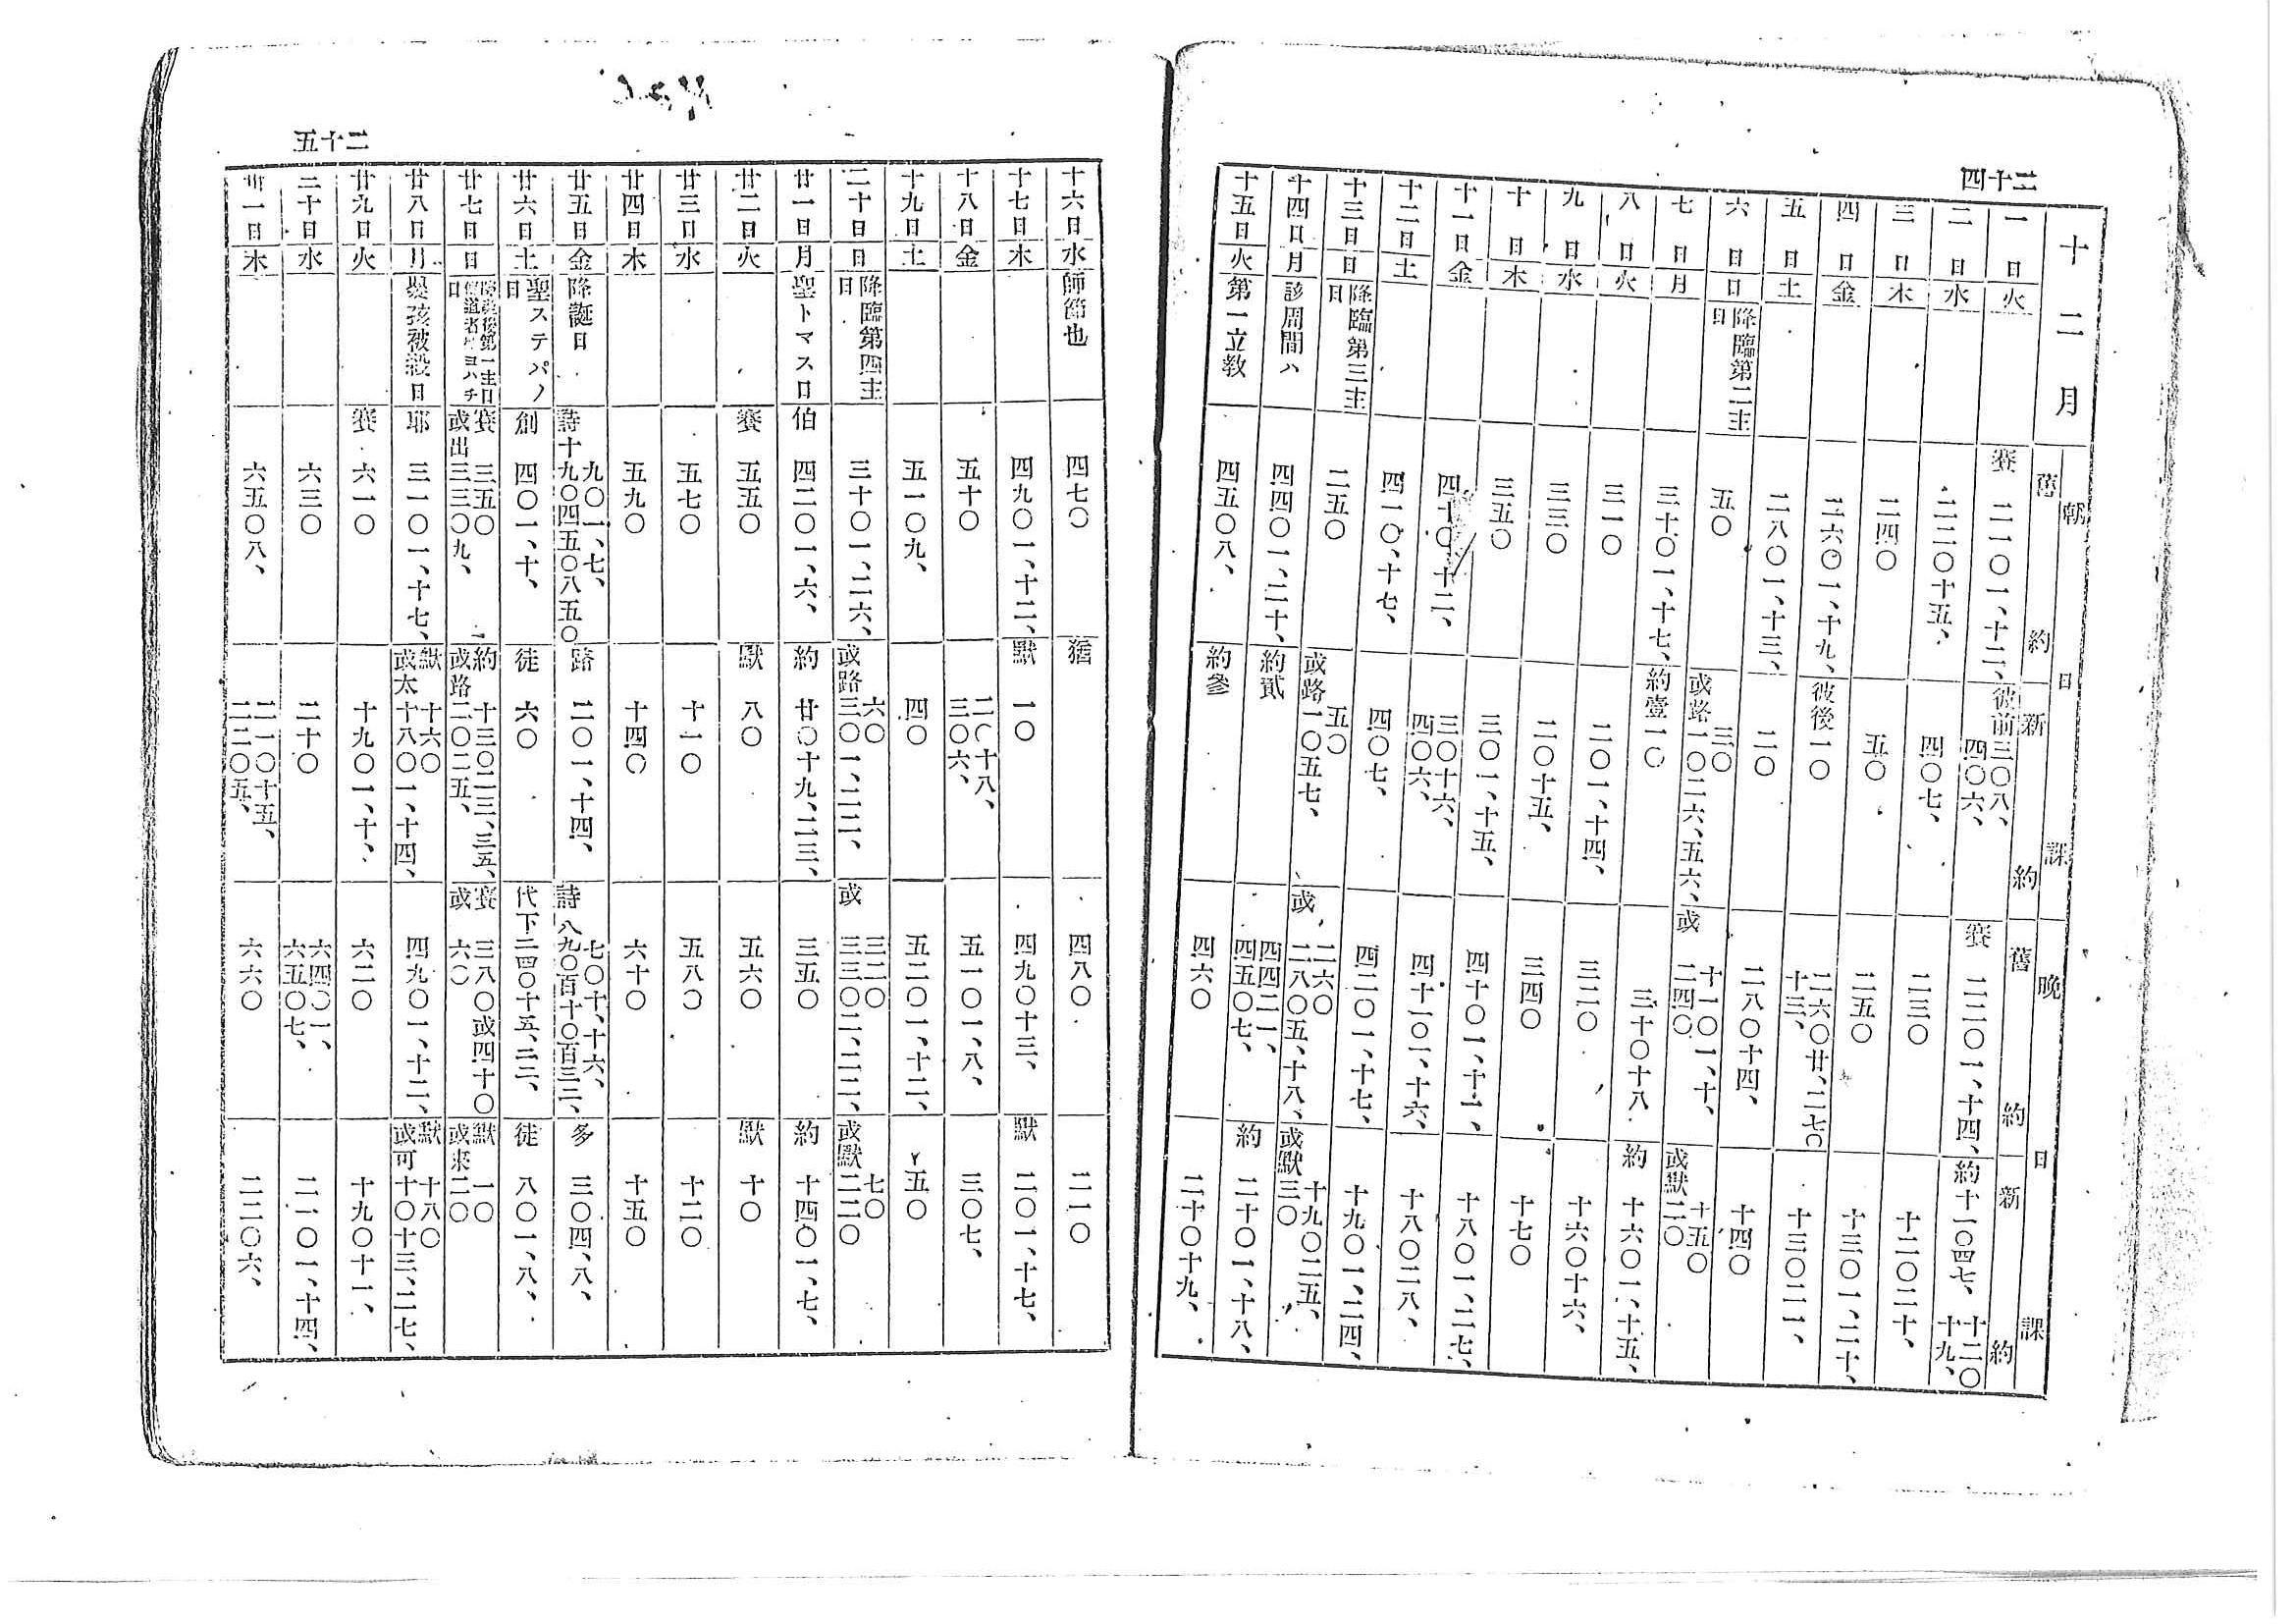 二十四
十二月
朝日課
舊約
新約
晩日課
舊約
新約
一日 火 賽 二一〇一、十二、 彼前三〇八、四〇六、 賽 二二〇一、十四、 約十一〇四七、十二〇十九、
二日 水 二二〇十五、 四〇七、 二三〇 十二〇二十、
三日 木 二四〇 五〇 二五〇 十三〇一、二十、
四日 金 二六〇一、十九、 彼後一〇 二六〇廿、二七〇十三、 十三〇二一、
五日 土 二八〇一、十三、 二〇 二八〇十四、 十四〇
六日 日 降臨第二主日 五〇 三〇 或路一〇二六、五六、 十一〇一、十、 或 二四〇 十五〇 或默二〇
七日 月 三十〇一、十七、 約壹一〇 三十〇十八 約 十六〇一、十五、
八日 火 三一〇 二〇一、十四、 三二〇 十六〇十六、
九日 水 三三〇 二〇十五、 三四〇 十七〇
十日 木 三五〇 三〇一、十五、 四十〇一、十一、 十八〇一、二七、
十一日 金 四十〇十二、 三〇十六、四〇六、 四十一〇一、十六、 十八〇二八、
十二日 土 四一〇、十七、 四〇七、 四二〇一、十七、 十九〇一、二四、
十三日 日 降臨第三主日 二五〇 五〇 或路一〇五七、 二六〇 或 二八〇五、十八、 十九〇二五、 或默三〇
十四日 月 該周間ハ 四四〇一、二十、 約貳 四四二一、四五〇七、 約 二十〇一、十八、
十五日 火 第一立教 四五〇八、 約參 四六〇 二十〇十九、
二十五
十六日 水 師節也 四七〇 猶 四八〇 二一〇
十七日 木 四九〇一、十二、 默 一〇 四九〇十三、 默 二〇一、十七、
十八日 金 五十〇 二〇十八、三〇六、 五一〇一、八、 三〇七、
十九日 土 五一〇九、 四〇 五二〇一、十二、 五〇
二十日 日 降臨第四主日 三十〇一、二六、 六〇 或路三〇一、二二、 三二〇 或 三三〇二、二二、 七〇 或默二二〇
廿一日 月 聖トマス日 伯 四二〇一、六、 約 廿〇十九、二三、 三五〇 約 十四〇一、七、
廿二日 火 賽 五五〇 默 八〇 五六〇 默 十〇
廿三日 水 五七〇 十一〇 五八〇 十二〇
廿四日 木 五九〇 十四〇 六十〇 十五〇
廿五日 金 降誕日 九〇一、七、 詩十九〇四五〇八五〇 路 二〇一、十四、 七〇十、十六、 詩八九〇百十〇百三二、 多 三〇四、八、
廿六日 土 聖ステパノ日 創 四〇一、十、 徒 六〇 代下二四〇十五、二二、 徒 八〇一、八、
廿七日 日 降誕後第一主日 傳道者ヨハチ日 賽 三五〇 或出三三〇九、 約 十三〇二三、三五、 或路二〇二五、 賽 三八〇或四十〇 或 六〇 默 一〇 或來二〇
廿八日 月 嬰孩被殺日 耶 三一〇一、十七、 默 十六〇 或太十八〇一、十四、 四九〇一、十二、 默 十八〇 或可十〇十三、二七、
廿九日 火 賽 六一〇 十九〇一、十、 六二〇 十九〇十一、
三十日 水 六三〇 二十〇 六四〇一、六五〇七、 二一〇一、十四、
卅一日 木 六五〇八、 二一〇十五、二二〇五、 六六〇 二二〇六、